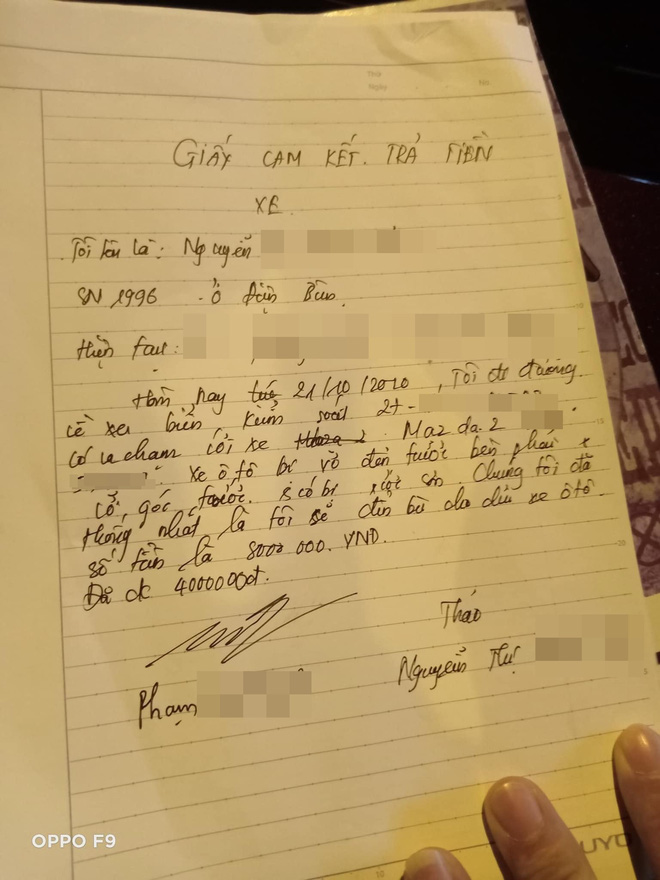 Thứ
Ngày
No.
GIẤY CAM KẾT. TRẢ TIỀN
XE
Tôi tên là: Nguyễn
SN 1996 - ở Điện Bàn.
Hiện tại:
Hôm nay 21/10/2020, Tôi đi đường
về xe biển kiểm soát 27-
có va chạm với xe Mazda 2
xe ô tô bị vỡ đèn trước bên phải
cổ, góc trước. bị xước sơn. Chúng tôi đã
thống nhất là tôi sẽ đền bù cho chủ xe ôtô
số tiền là 8000 000. VNĐ.
Đã ck 4000000đ.
Thảo
Phạm
Nguyễn Thị
OPPO F9
UYO